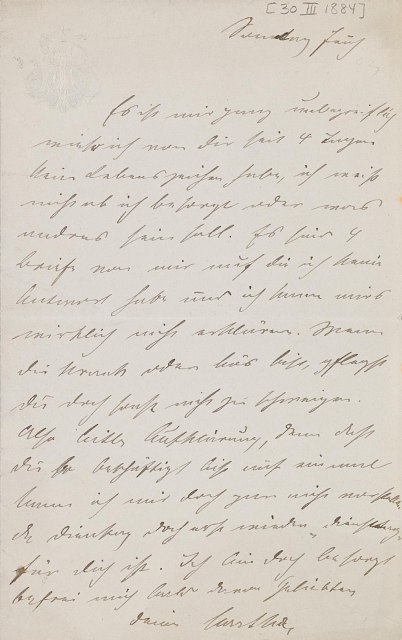 [30 III 1884]
Sonntag früh
Es ist mir ganz unbegreiflich
weshalb ich von Dir seit 4 Tagen
kein Lebenszeichen habe, ich weiß
nicht ob ich besorgt oder was
andres sein soll. Es sind 4
Briefe von mir auf die ich keine
Antwort habe und ich kann mirs
wirklich nicht erklären. Wenn
Du krank oder bös bist, pflegst
Du doch sonst nicht zu schweigen.
Also bitte Aufklärung, denn daß
Du so beschäftigt bist auf einmal
kann ich mir doch gar nicht vorstellen
da Dienstag doch erst wieder
für Dich ist. Ich bin doch besorgt
befrei mich lieber davon Geliebter
Deine Martha.